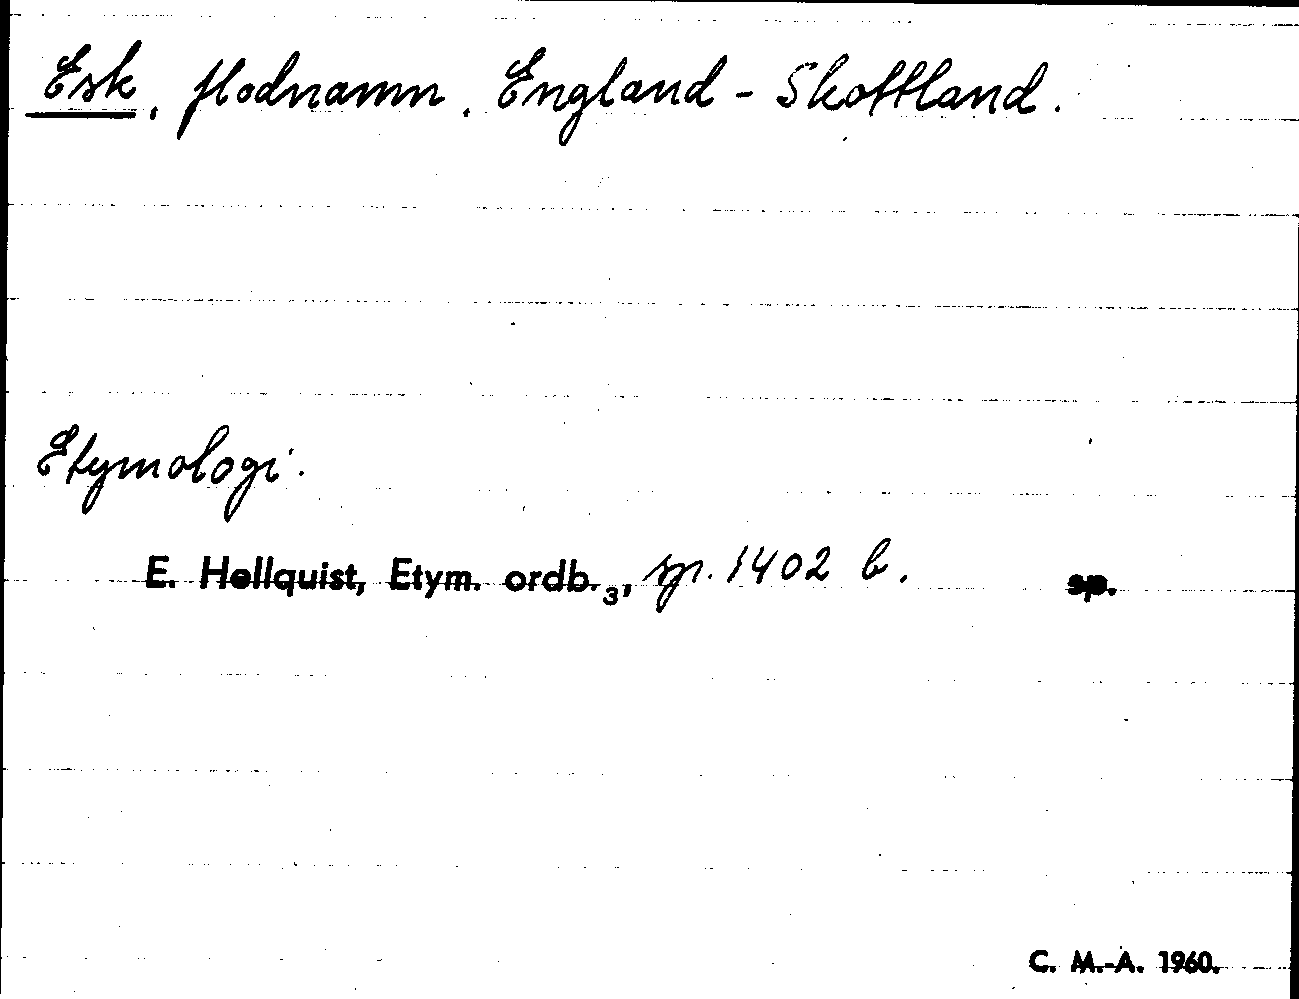 Esk, flodnamn. England - Skottland.
Etymologi.
E. Hellquist, Etym. ordb.₃, sp. 1402 b. sp.
C. M.-A. 1960.